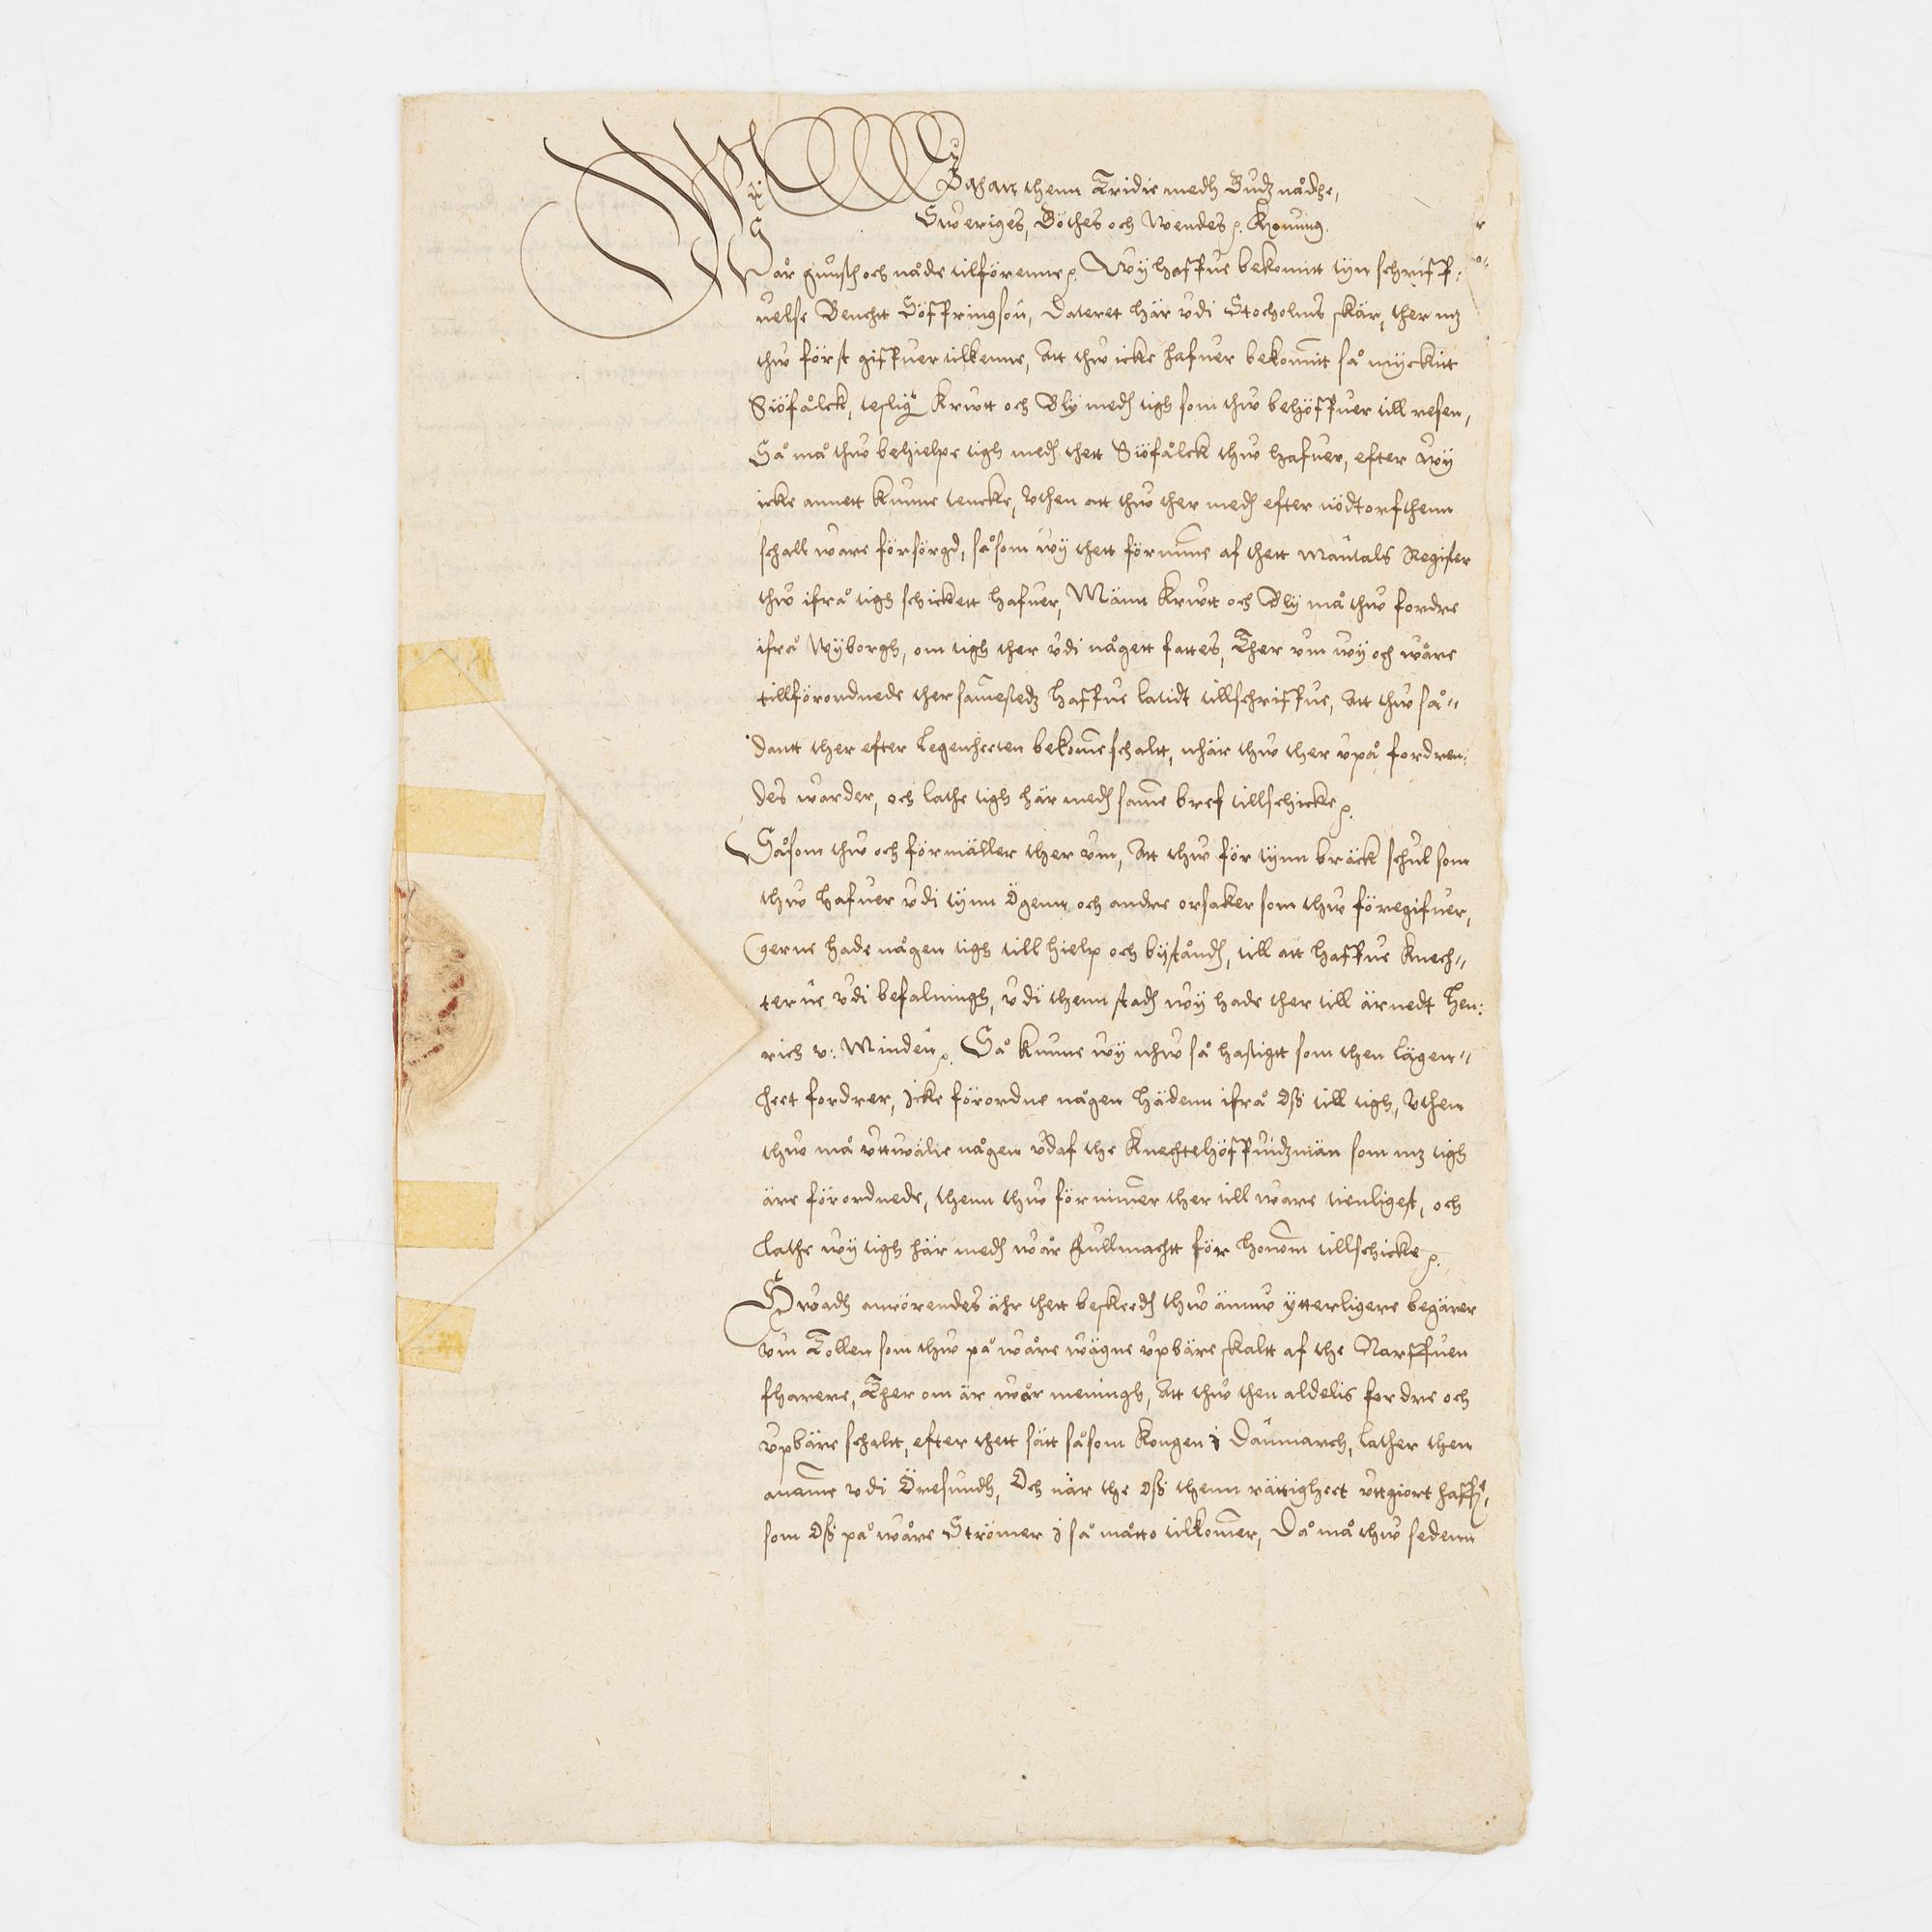 Wij Johan thenn Tridie medh Gudz nådhe,
Sweriges, Göthes och Wendes etc. Konung.
Wår gunst och nåde tilförenne etc. Wij haffue bekomitt tijn schriff-
uelse Bencht Söffringson, Dateret här vdi Stocholms skär, ther mz
thw först giffuer tilkenne, Att thw icke hafuer bekommitt så myckitt
Siöfålck, teslig Krwtt och Blÿ medh tigh som thw behöffuer till resen,
Så må thw behielpe tigh medh thett Siöfålck thw hafuer, efter wÿ
icke annett kunne tencke, Vthen att thw ther medh efter nödtorfthenn
schall ware försörgd, såsom wÿ thett förnimme af thett Mantals Register
thw ifrå tigh schickett hafuer, Männ Krwtt och Blÿ må thw fordre
ifrå Wÿborgh, om tigh ther vdi någett fattes, Ther vm wÿ och wåre
tillförordnede ther sammestedz haffue latidt tillschriffue, Att thw så-
dantt ther efter legenheeten bekomme schaltt, nhär thw ther vpå fordren-
des warder, och lathe tigh här medh samme bref tillschicke etc.
Såsom thw och förmäller ther vm, Att thw för tijnn bräck schul som
thw hafuer vdi tijnn Ögenn och andre orsaker som thw föregifuer,
gerne hade någen tigh till hielp och bijståndh, till att haffue Knech-
terne vdi befalningh, vdi thenn stadh wÿ hade ther till ärnedt Hen-
rich v: Minden etc. Så kunne wÿ nhw så hastigtt som then lägen-
heet fordrer, icke förordne någen hädenn ifrå Oss till tigh, Vthen
thw må vttwälie någen vdaf the Knechtehöffuidzmän som mz tigh
äre förordnede, thenn thw förnimmer ther till ware tienligest, och
lathe wÿ tigh här medh wår fullmacht för honom tillschicke etc.
Hwadh anrörendes ähr thett beskeedh thw ännw ÿtterligere begärer
vm Tollen som thw på wåre wägne vpbäre skaltt af the Narffuen
fharere, Ther om är wår meningh, Att thw then aldelis fordre och
vpbäre schaltt, efter thett sätt såsom Kongen i Danmarch, lather then
anamme vdi Öresundh, Och när the Oss thenn rättigheet vttgiort haffue,
som Oss på wåre Strömer i så måtto tilkommer, Då må thw sedenn